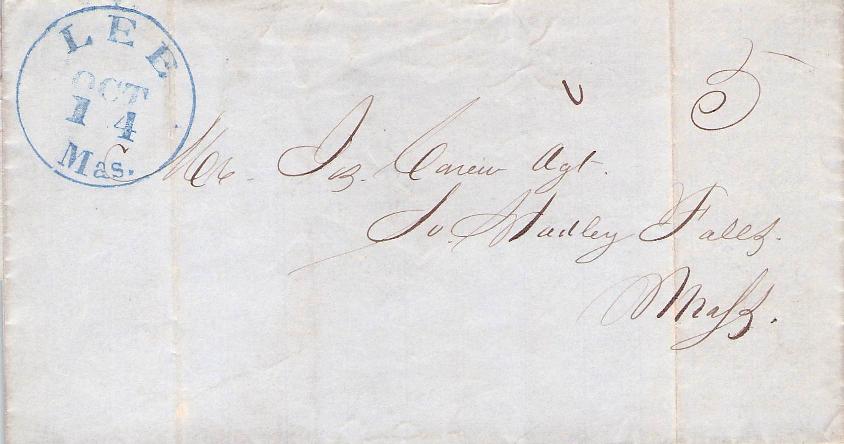 LEE
OCT
14
Mas.
5
Mr. Jos. Carew Agt.
So. Hadley Falls.
Mass.